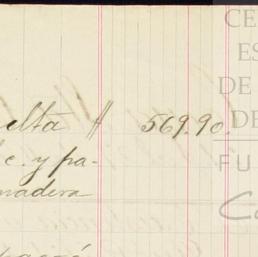 elta # 569.90.
& c. y pa-
madera
CE
ES
DE
DE
FU